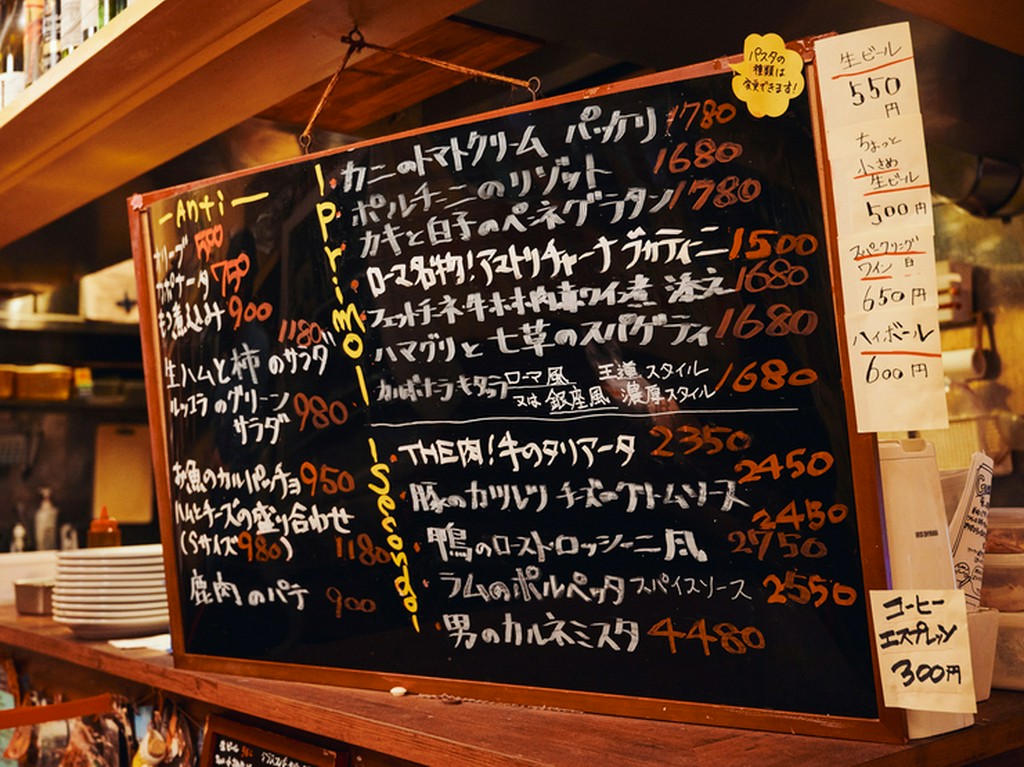 パスタの
種類は
変更できます！
-Anti-
オリーブ 500
カポナータ 750
煮込み 900
生ハムと柿のサラダ 1180
ルッコラのグリーン
サラダ 980
お魚のカルパッチョ 950
ハムとチーズの盛り合わせ
(Sサイズ980) 1180
鹿肉のパテ 900
-Primo-
カニのトマトクリーム パッケリ 1780
ポルチーニのリゾット 1680
カキと白子のペンネグラタン 1780
ローマ名物！アマトリチャーナ ブカティーニ 1500
フェットチーネ牛ホホ肉赤ワイン煮 添え 1680
ハマグリと七草のスパゲティ 1680
カルボナーラ キタッラ ローマ風 王道スタイル 1680
又は 銀座風 濃厚スタイル
-Secondo-
THE肉！牛のタリアータ 2350
豚のカツレツ チーズクリームソース 2450
2450
鴨のローストロッシーニ風 2750
ラムのポルペッタ スパイスソース 2550
男のカルネミスタ 4480
生ビール
550
円
ちょっと
小さめ
生ビール
500円
スパークリング
ワイン 白
650円
ハイボール
600円
コーヒー
エスプレッソ
300円